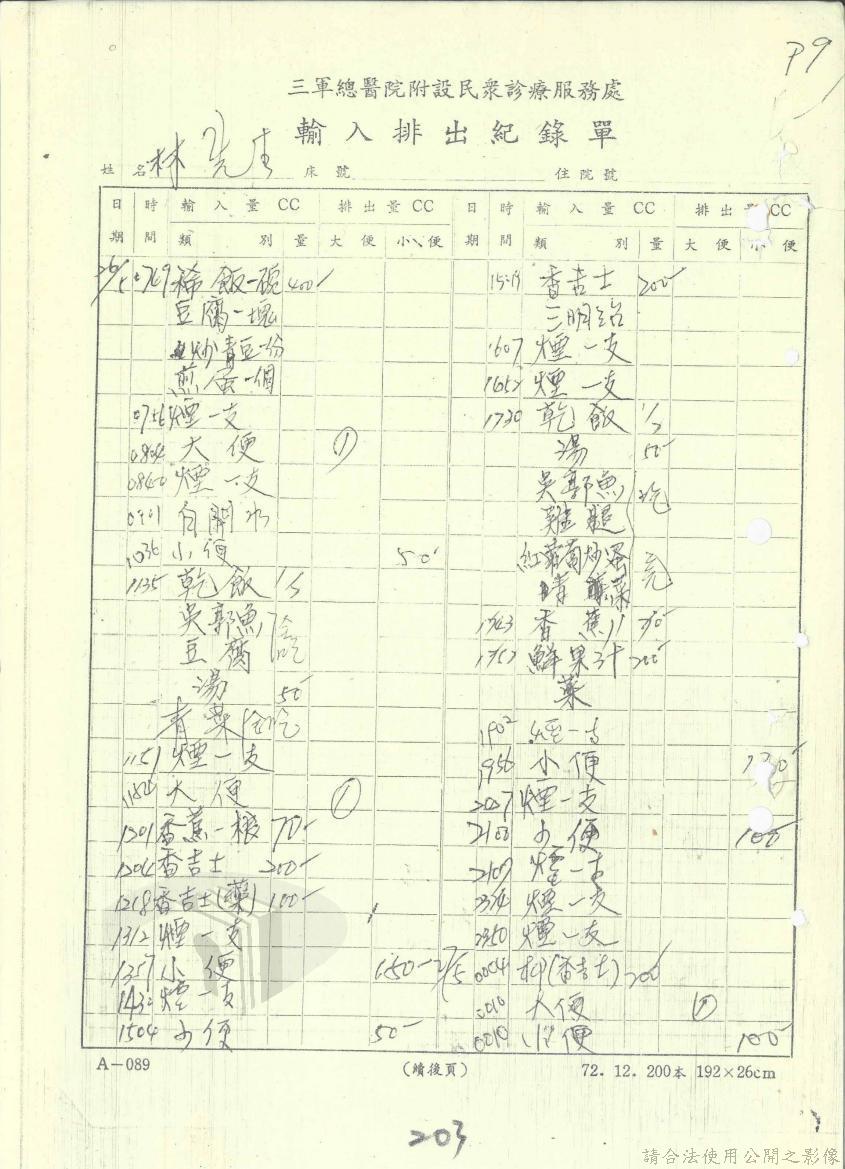 P9
三軍總醫院附設民衆診療服務處
輸入排出紀錄單
姓名 林先生 床號 住院號
日期 時間 輸入量CC 類別 量 排出量CC 大便 小便 日期 時間 輸入量CC 類別 量 排出量CC 大便 小便
26/5 0749 稀飯一碗 400
豆腐一塊
炒青豆一份
煎蛋一個
0756 煙一支
0804 大便 ①
0840 煙一支
0901 白開水
1036 小便 50
1135 乾飯
吳郭魚
豆腐
湯 50
青菜
1151 煙一支
大便 ①
1201 香蕉一根 70
1204 香吉士 200
1218 香吉士(藥) 100
1312 煙一支
1357 小便 150
煙一支
1504 小便 50
香吉士 200
三明治
1607 煙一支
1652 煙一支
1730 乾飯
湯 50
吳郭魚
雞腿
紅蘿蔔炒蛋 完
香蕉
鮮果汁 200
藥
1902 煙一支
1956 小便
2027 煙一支
2100 小便 100
2109 煙一支
煙一支
2350 煙一支
27/5 0004 (香吉士) 200
0010 大便 ①
0010 小便 100
A-089 (續後頁) 72.12.200本 192×26cm
203
請合法使用公開之影像